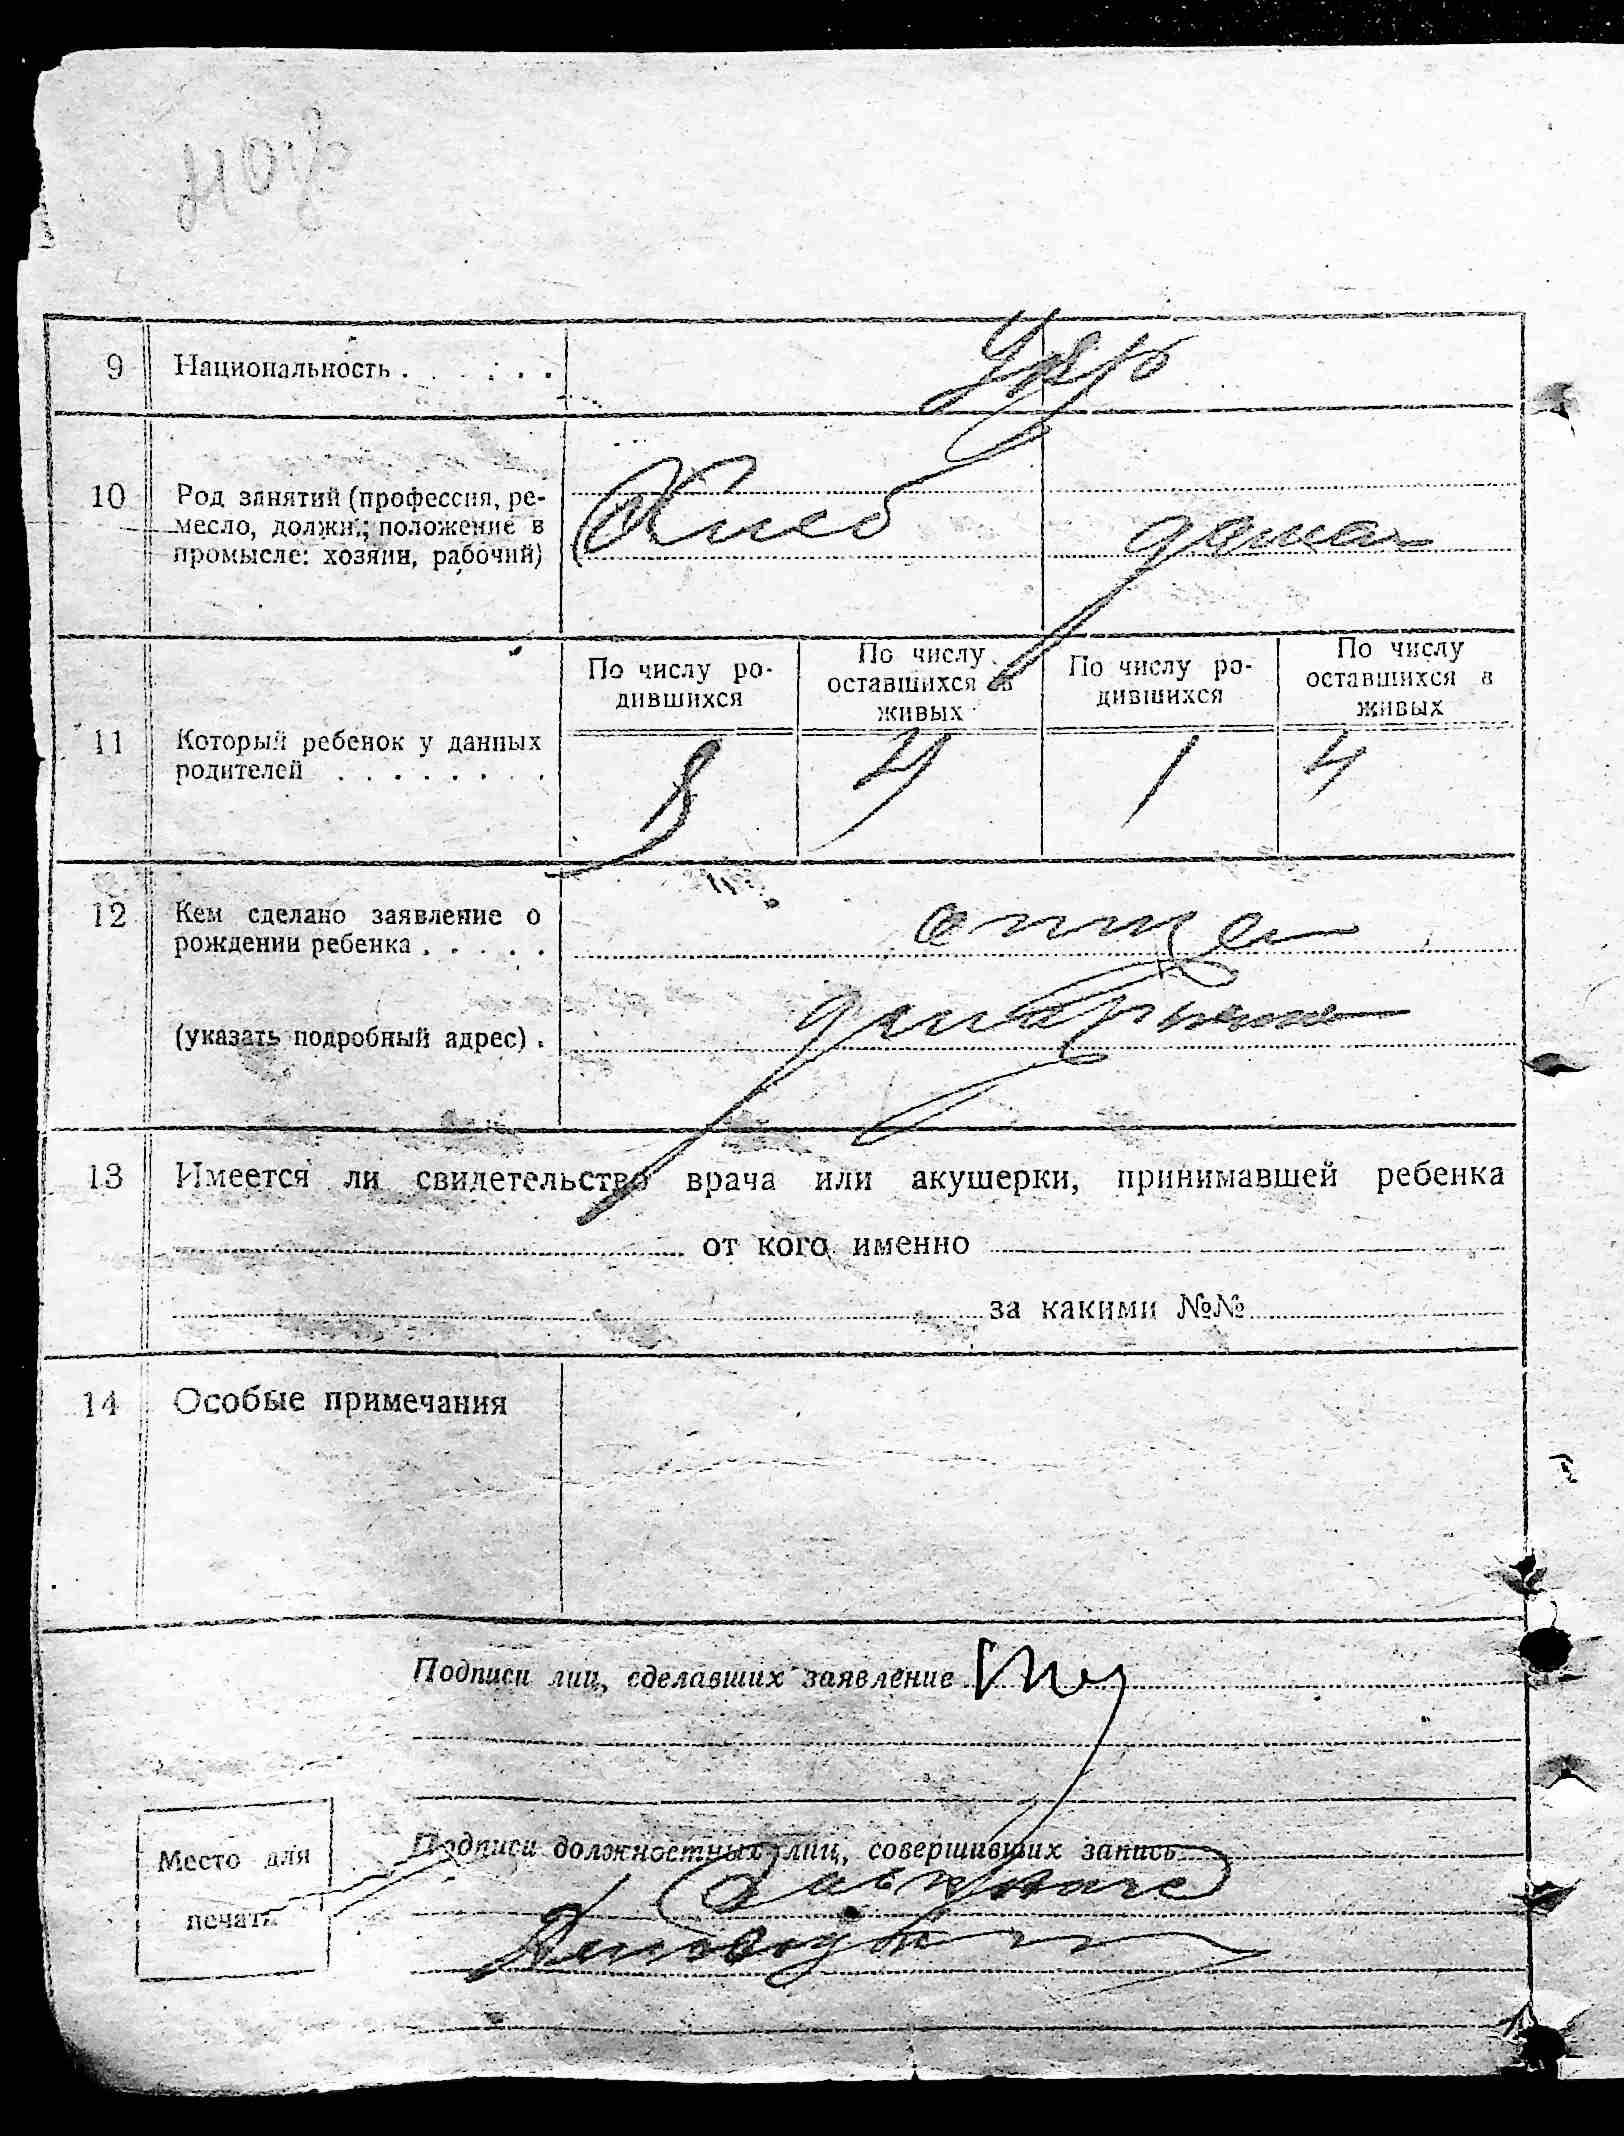 9 Национальность . . . . . . Укр
10 Род занятий (профессия, ре-
месло, должн.; положение в
промысле: хозяин, рабочий)
Хлеб дома
По числу ро-
дившихся
По числу
оставшихся в
живых
По числу ро-
дившихся
По числу
оставшихся в
живых
11 Который ребенок у данных
родителей . . . . . . . .
8 4 1 4
12 Кем сделано заявление о
рождении ребенка . . . . .
отцем
(указать подробный адрес) .
13 Имеется ли свидетельство врача или акушерки, принимавшей ребенка
от кого именно
за какими №№
14 Особые примечания
Подписи лиц, сделавших заявление
Подписи должностных лиц, совершивших запись
Место для
печати